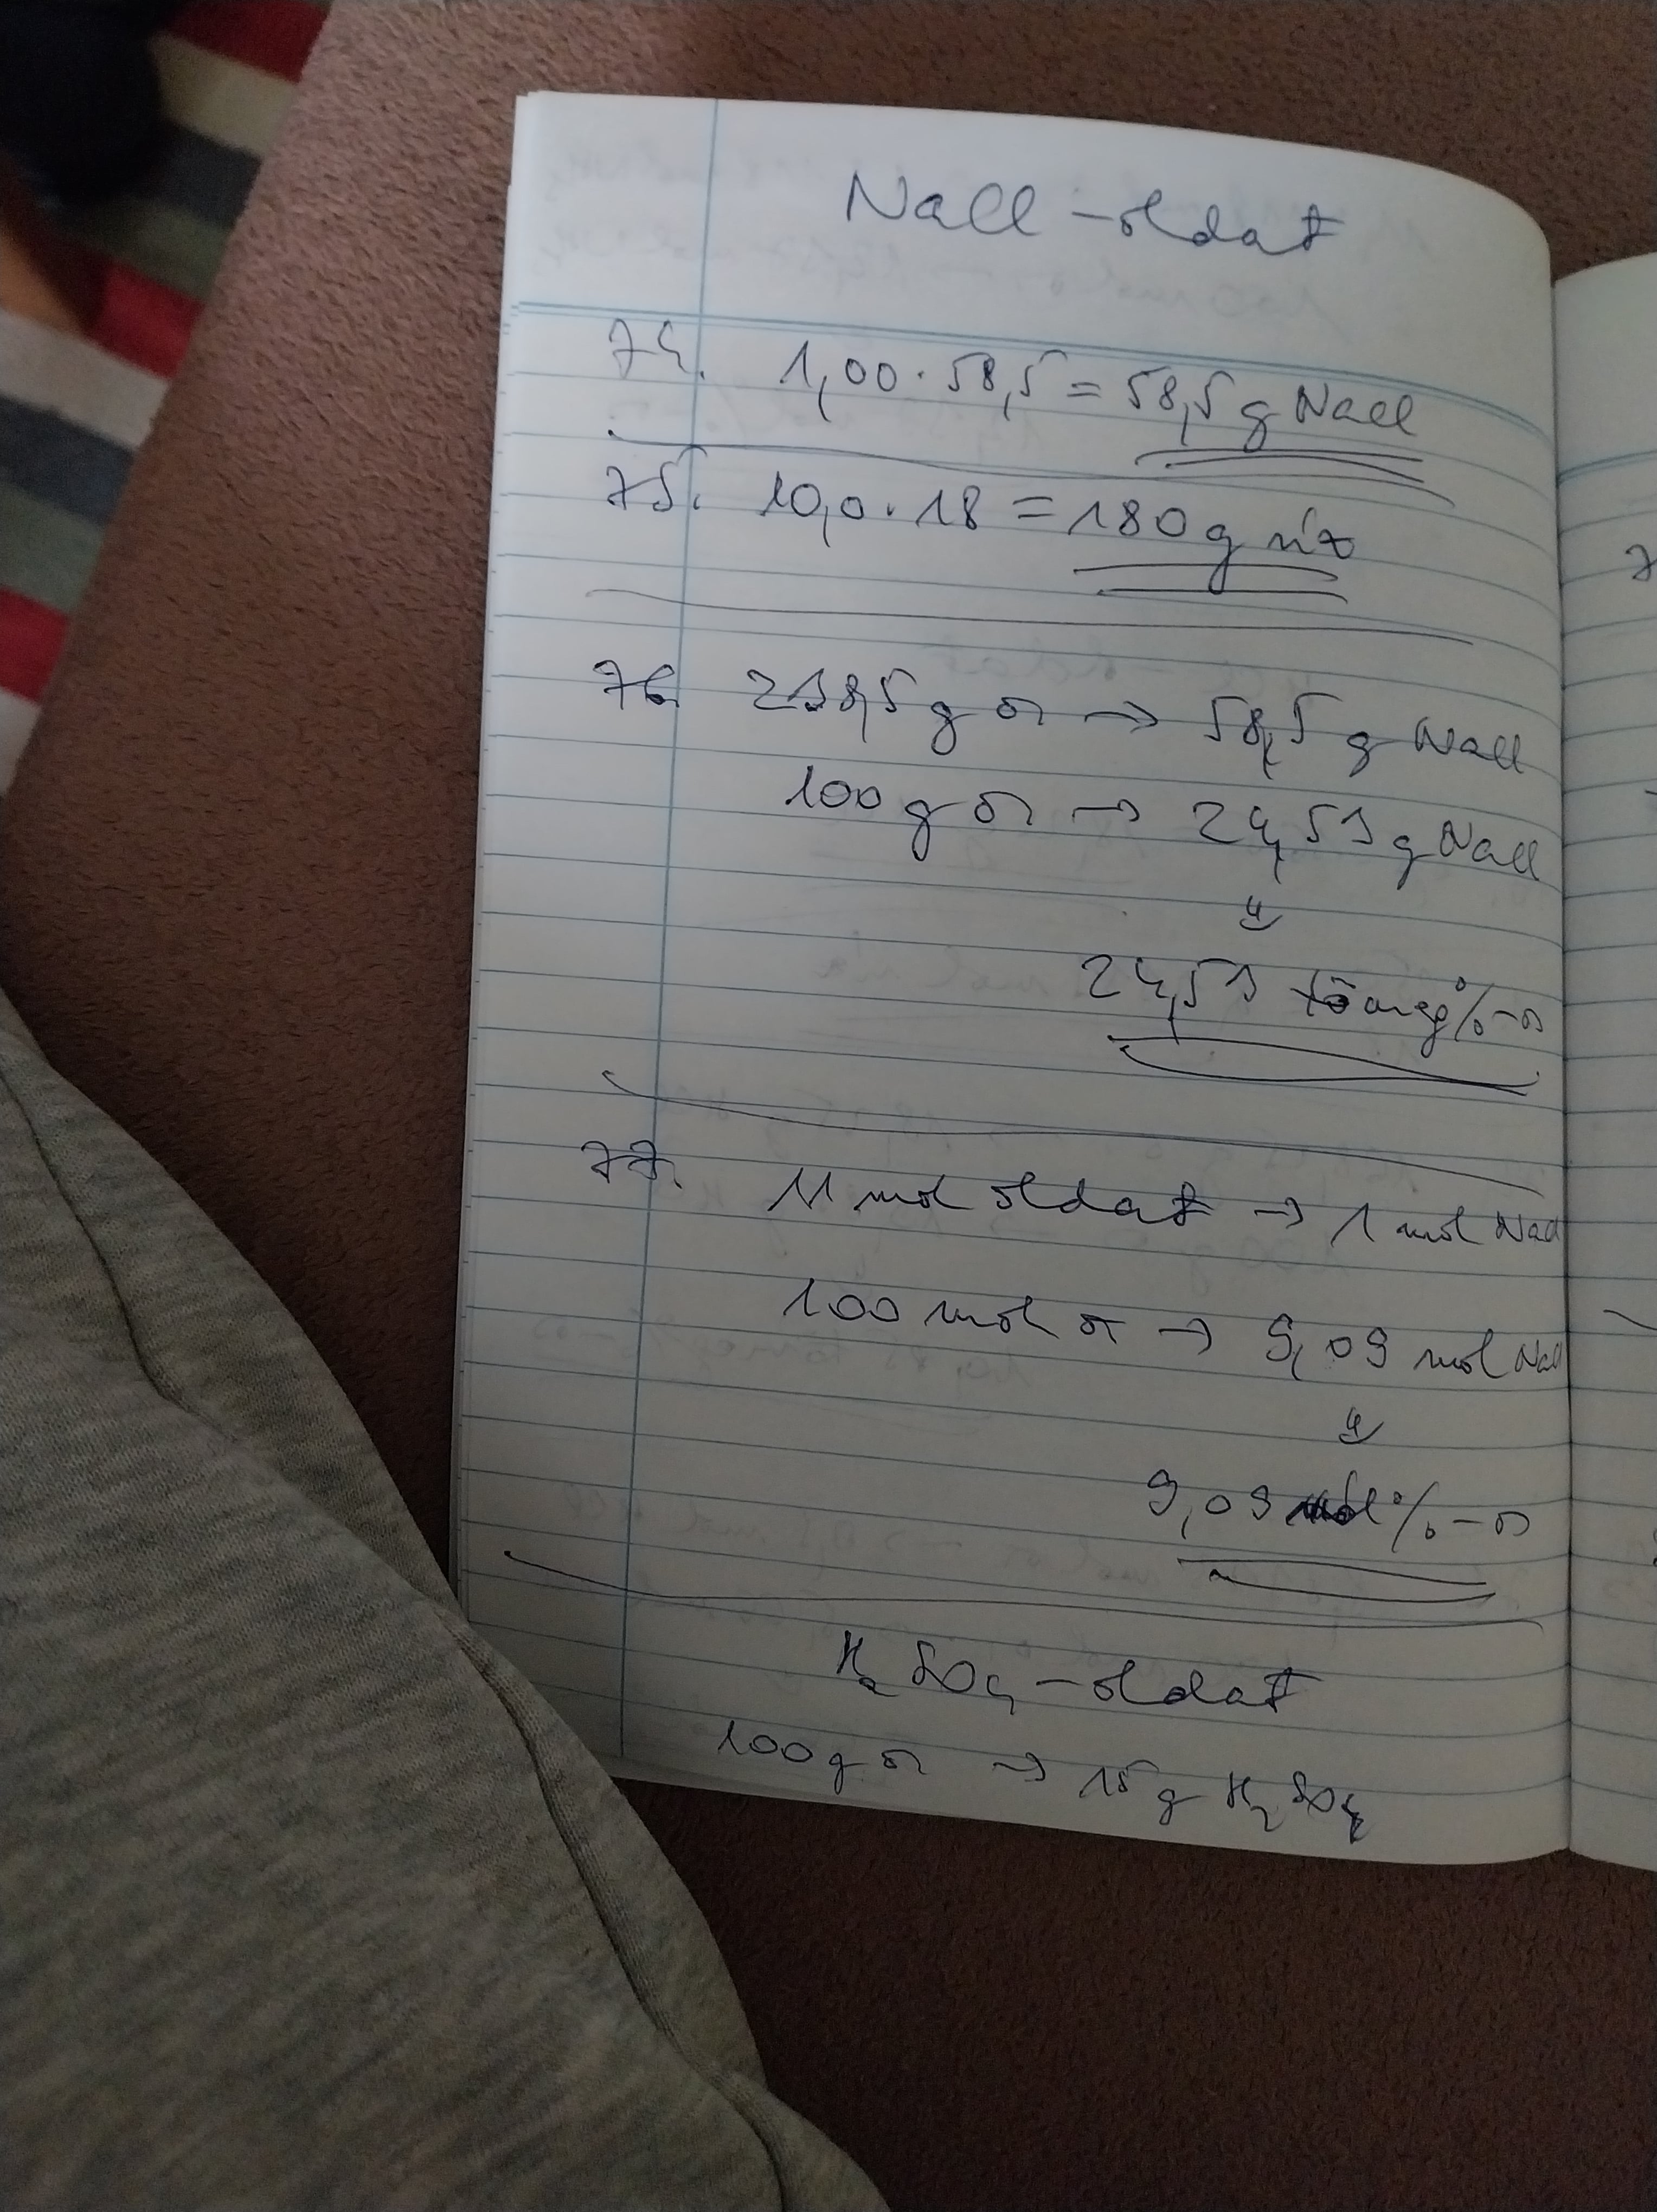 NaCl-oldat
74. 1,00 · 58,5 = 58,5 g NaCl
75. 10,0 · 18 = 180 g víz
76. 238,5 g o → 58,5 g NaCl
100 g o → 24,53 g NaCl
⇓
24,53 tömeg%-o
77. 11 mol oldat → 1 mol NaCl
100 mol o → 9,09 mol NaCl
⇓
9,09 mól%-o
H2SO4-oldat
100 g o → 15 g H2SO4